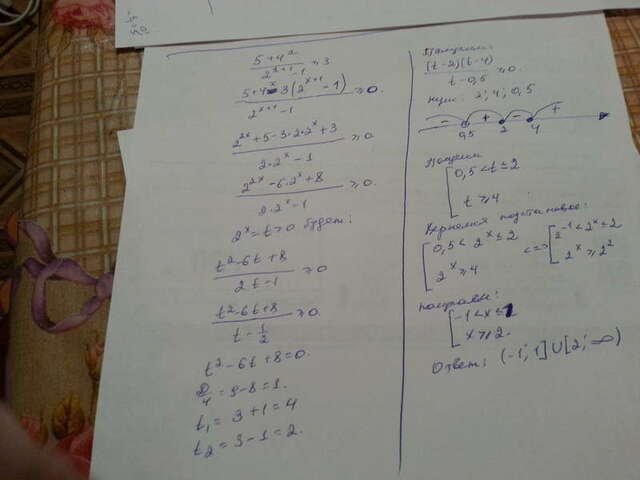 (5+4^x)/(2^(x+1)-1) ≥ 3
(5+4^x-3(2^(x+1)-1))/(2^(x+1)-1) ≥ 0.
(2^(2x)+5-3·2·2^x+3)/(2·2^x-1) ≥ 0
(2^(2x)-6·2^x+8)/(2·2^x-1) ≥ 0.
2^x = t > 0 будет:
(t²-6t+8)/(2t-1) ≥ 0
(t²-6t+8)/(t-1/2) ≥ 0.
t²-6t+8=0.
D/4 = 9-8=1.
t₁ = 3+1=4
t₂ = 3-1=2.
Получим:
(t-2)(t-4)/(t-0,5) ≥ 0.
нули: 2; 4; 0,5
- + - +
0,5 2 4
Получим
[ 0,5 < t ≤ 2
t ≥ 4
Вернемся подстановкое:
[ 0,5 < 2^x ≤ 2 <=> [ 2^(-1) < 2^x ≤ 2
2^x ≥ 4 2^x ≥ 2²
получаем:
[ -1 < x ≤ 1
x ≥ 2.
Ответ: (-1; 1] ∪ [2; ∞)